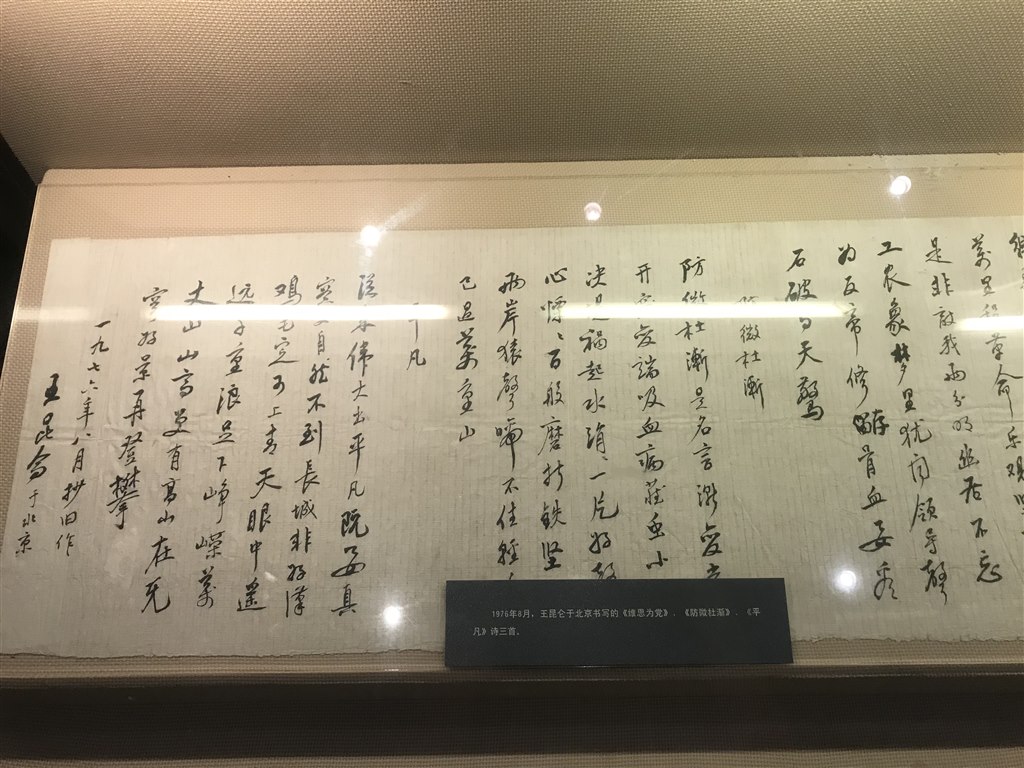 万里 革命乐观
是非敌我两分明幽居不忘
工农象梦里犹闻领导声
为反帝修酬首血要看
石破与天惊
防微杜渐
防微杜渐是名言
开 变端吸血病菌虫小
决堤祸起水涓涓一片好
心慄慄百般磨折铁坚
两岸猿声啼不住轻
已过万重山
平凡
从来伟大出平凡既要真
实 自然不到长城非好汉
鸡毛定可上青天眼中遥
远千重浪足下峥嵘万
丈山山高更有高山在无
穷好景再登攀
一九七六年八月抄旧作
王昆仑于北京
1976年8月，王昆仑于北京书写的《维思为党》、《防微杜渐》、《平
凡》诗三首。